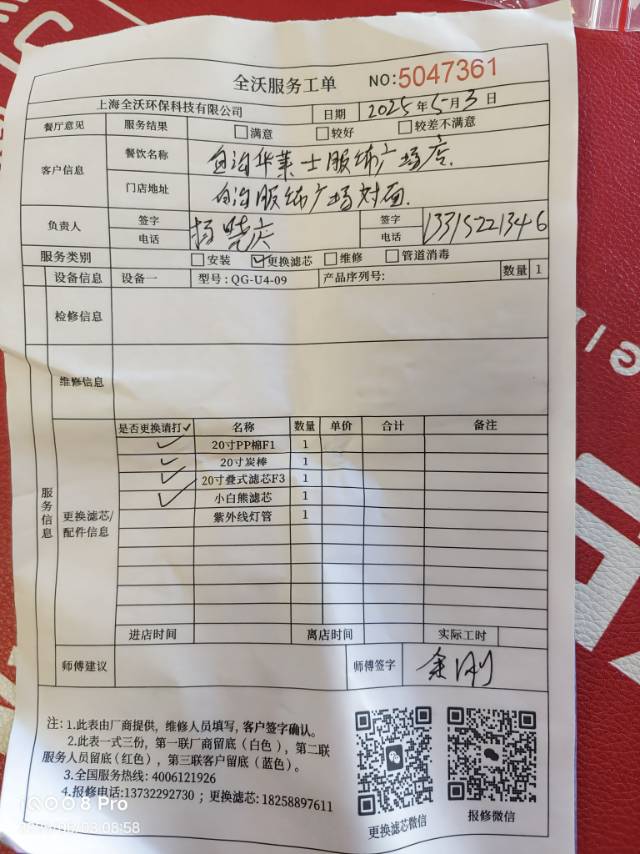 全沃服务工单 NO:5047361
上海全沃环保科技有限公司 日期 2025年5月3日
餐厅意见 服务结果 □满意 □较好 □较差不满意
客户信息 餐饮名称 白沟华莱士服饰广场店.
门店地址 白沟服饰广场对面.
负责人 签字 杨晓庆 签字
电话 电话 13315221346
服务类别 □安装 ☑更换滤芯 □维修 □管道消毒
设备信息 设备一 型号: QG-U4-09 产品序列号: 数量 1
检修信息
维修信息
服务信息
更换滤芯/配件信息
是否更换请打✓ 名称 数量 单价 合计 备注
✓ 20寸PP棉F1 1
✓ 20寸炭棒 1
✓ 20寸叠式滤芯F3 1
✓ 小白熊滤芯 1
紫外线灯管 1
进店时间 离店时间 实际工时
师傅建议 师傅签字
注: 1.此表由厂商提供, 维修人员填写, 客户签字确认。
2.此表一式三份, 第一联厂商留底(白色), 第二联
服务人员留底(红色), 第三联客户留底(蓝色)。
3.全国服务热线: 4006121926
4.报修电话:13732292730 ; 更换滤芯: 18258897611
更换滤芯微信 报修微信
iQOO 8 Pro